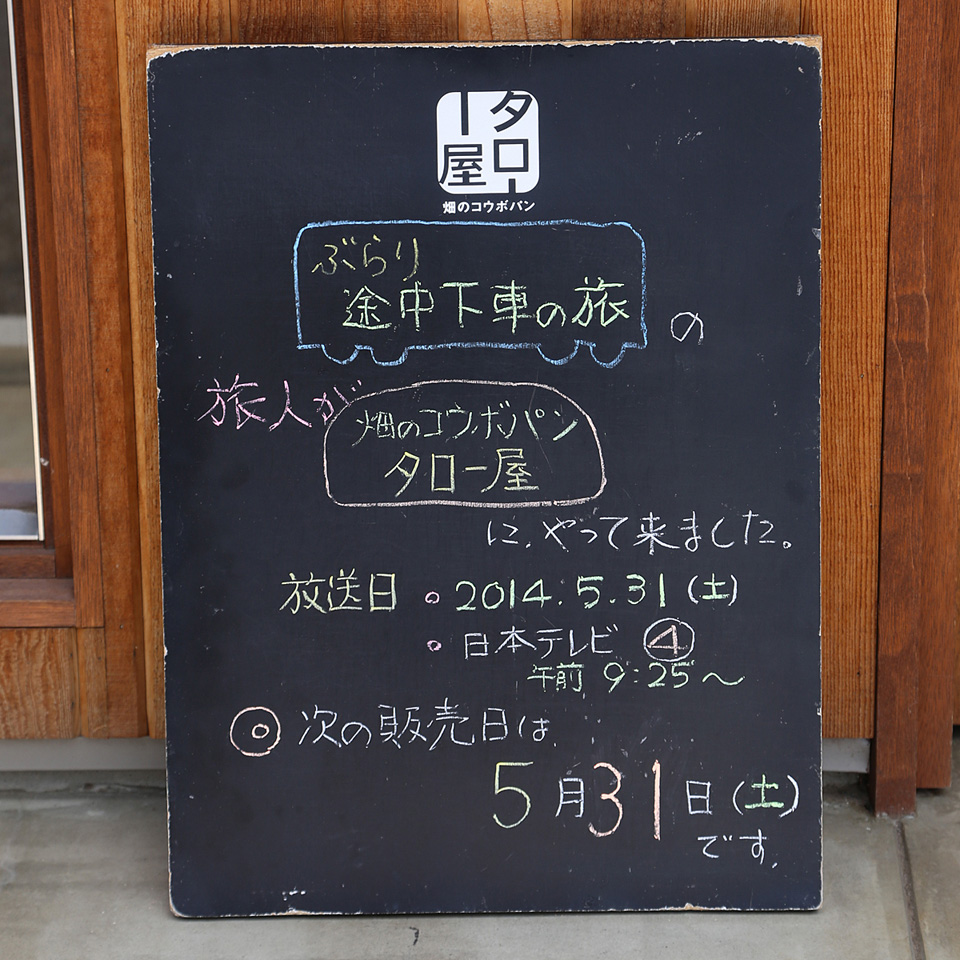 タロー屋
畑のコウボパン
ぶらり
途中下車の旅
の
旅人が
畑のコウボパン
タロー屋
に、やって来ました。
放送日 ・2014.5.31(土)
・日本テレビ ④
午前 9:25〜
◎ 次の販売日は、
5月31日(土)
です。